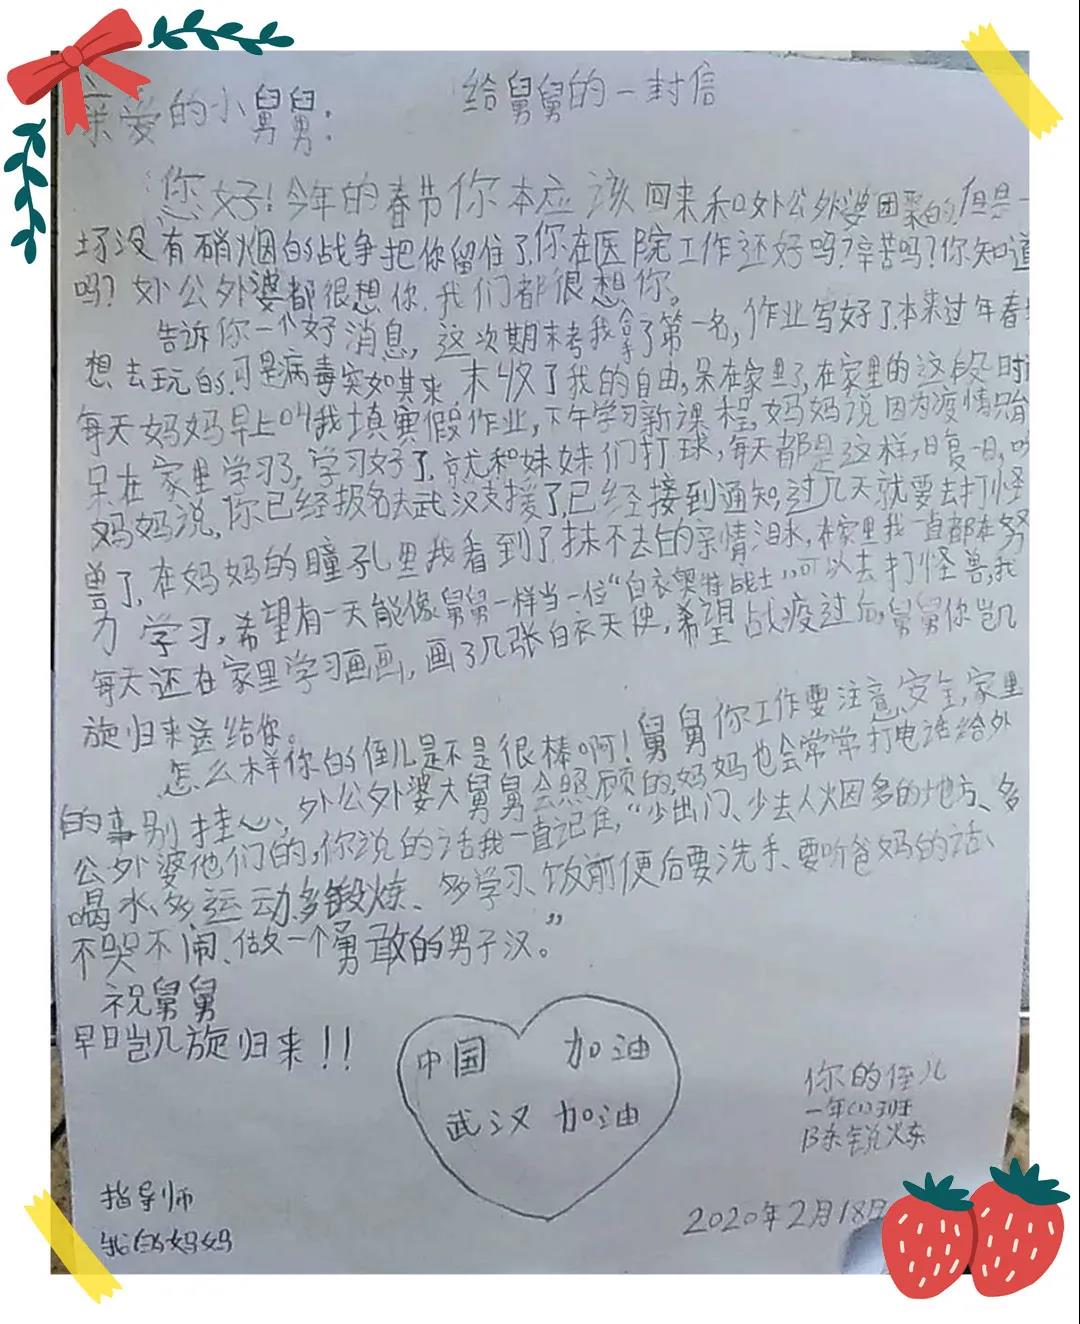 给舅舅的一封信
亲爱的小舅舅:
您好!今年的春节你本应该回来和外公外婆团聚的,但是一
场没有硝烟的战争把你留住了,你在医院工作还好吗?辛苦吗?你知道
吗?外公外婆都很想你,我们都很想你。
告诉你一个好消息,这次期末考我拿了第一名,作业写好了.本来过年春
想去玩的.可是病毒突如其来 末收了我的自由,呆在家里了,在家里的这段时
每天妈妈早上叫我填寒假作业,下午学习新课程,妈妈说因为疫情只能
呆在家里学习了,学习好了,就和妹妹们打球,每天都是这样,日复一日,听
妈妈说,你已经报名去武汉支援了,已经接到通知,过几天就要去打怪
兽了,在妈妈的瞳孔里我看到了抹不去的亲情泪水,在家里我一直都在努
力学习,希望有一天能像舅舅一样当一位“白衣奥特战士”,可以去打怪兽,我
每天还在家里学习画画,画了几张白衣天使,希望战疫过后,舅舅你凯
旋归来送给你。
怎么样你的侄儿是不是很棒啊!舅舅你工作要注意、安全,家里
的事别挂心,外公外婆大舅舅会照顾的,妈妈也会常常打电话给外
公外婆他们的,你说的话我一直记住,“少出门、少去人火因多的地方、多
喝水、多运动、多锻炼、多学习、饭前便后要洗手、要听爸妈的话、
不哭不闹、做一个勇敢的男子汉。”
祝舅舅
早日凯旋归来!!
中国 加油
武汉 加油
你的侄儿
一年(1)班
陈锐炼
2020年2月18日
指导师
我的妈妈